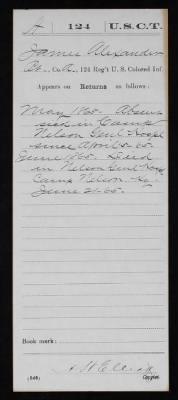 A 124 U.S.C.T.
James Alexander
Pt., Co. A, 124 Reg't U. S. Colored Inf.
Appears on Returns as follows:
May 1865. Absent
sick in Camp
Nelson Genl Hospl
since April 5-65.
June 1865. Died
in Nelson Genl Hosp
Camp Nelson Ky.
June 21-65.
Book mark:
(546) Copyist.